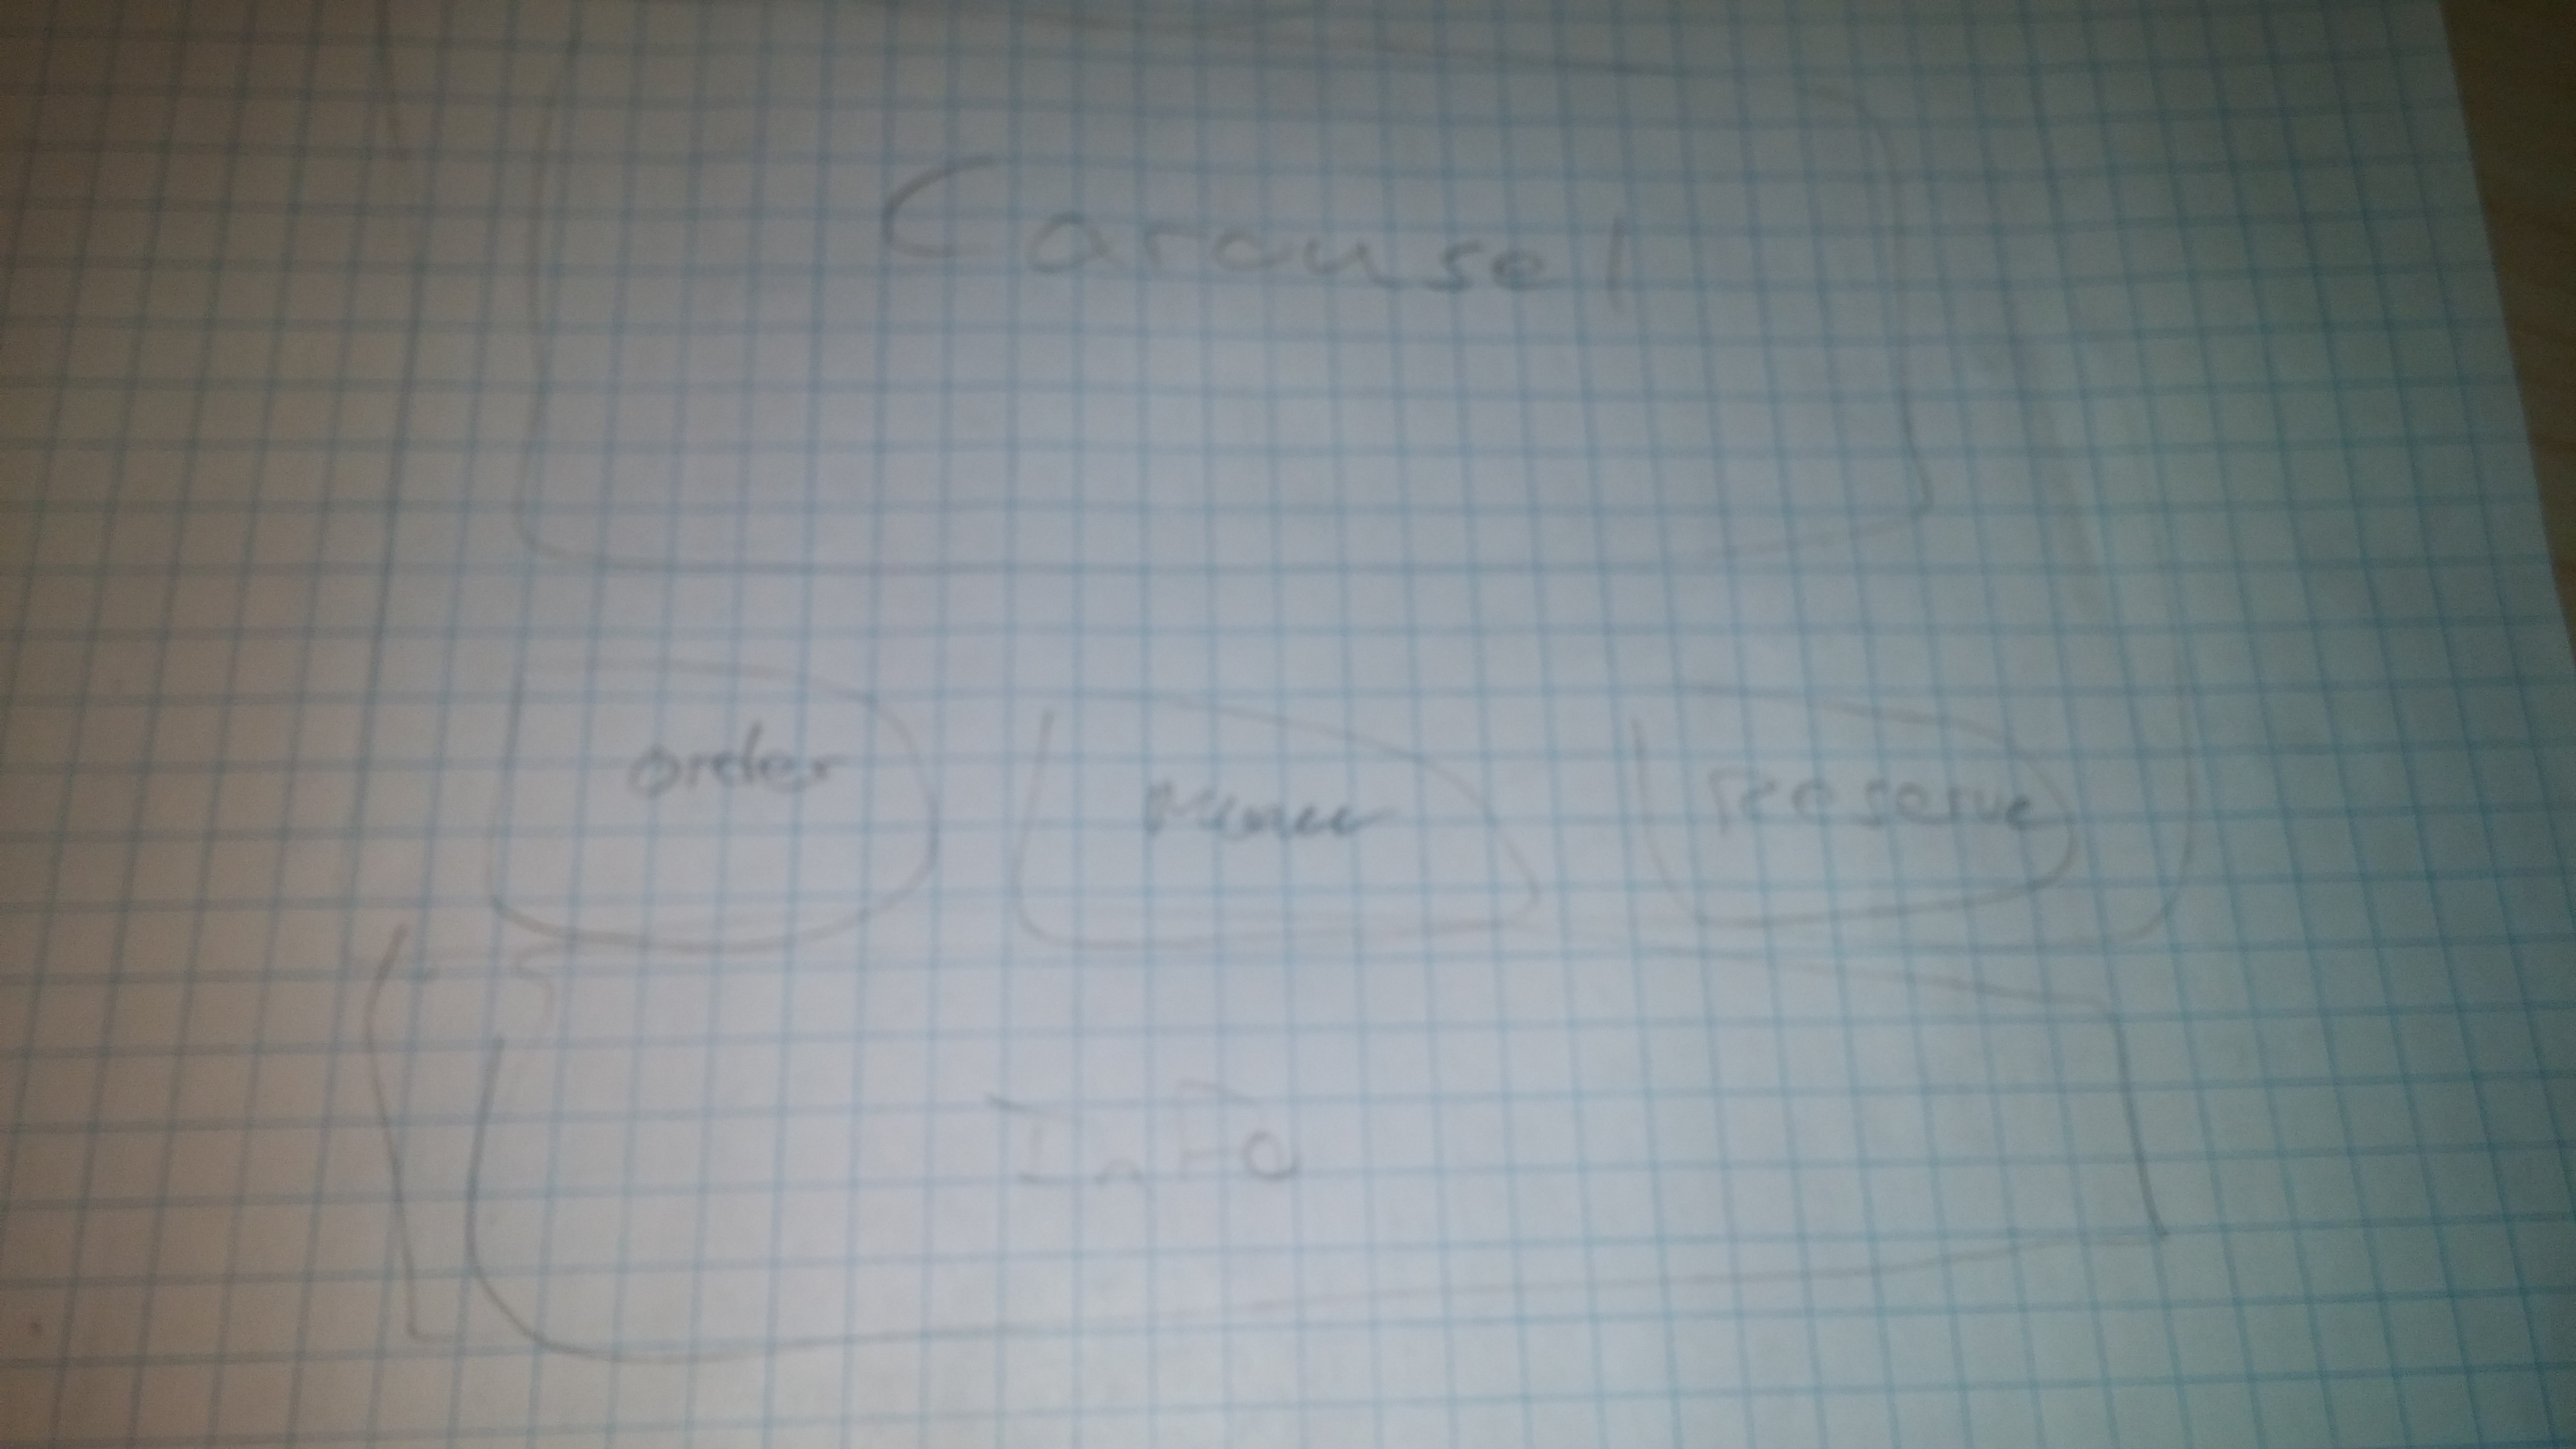 Carousel
order Menu reserve
InFo